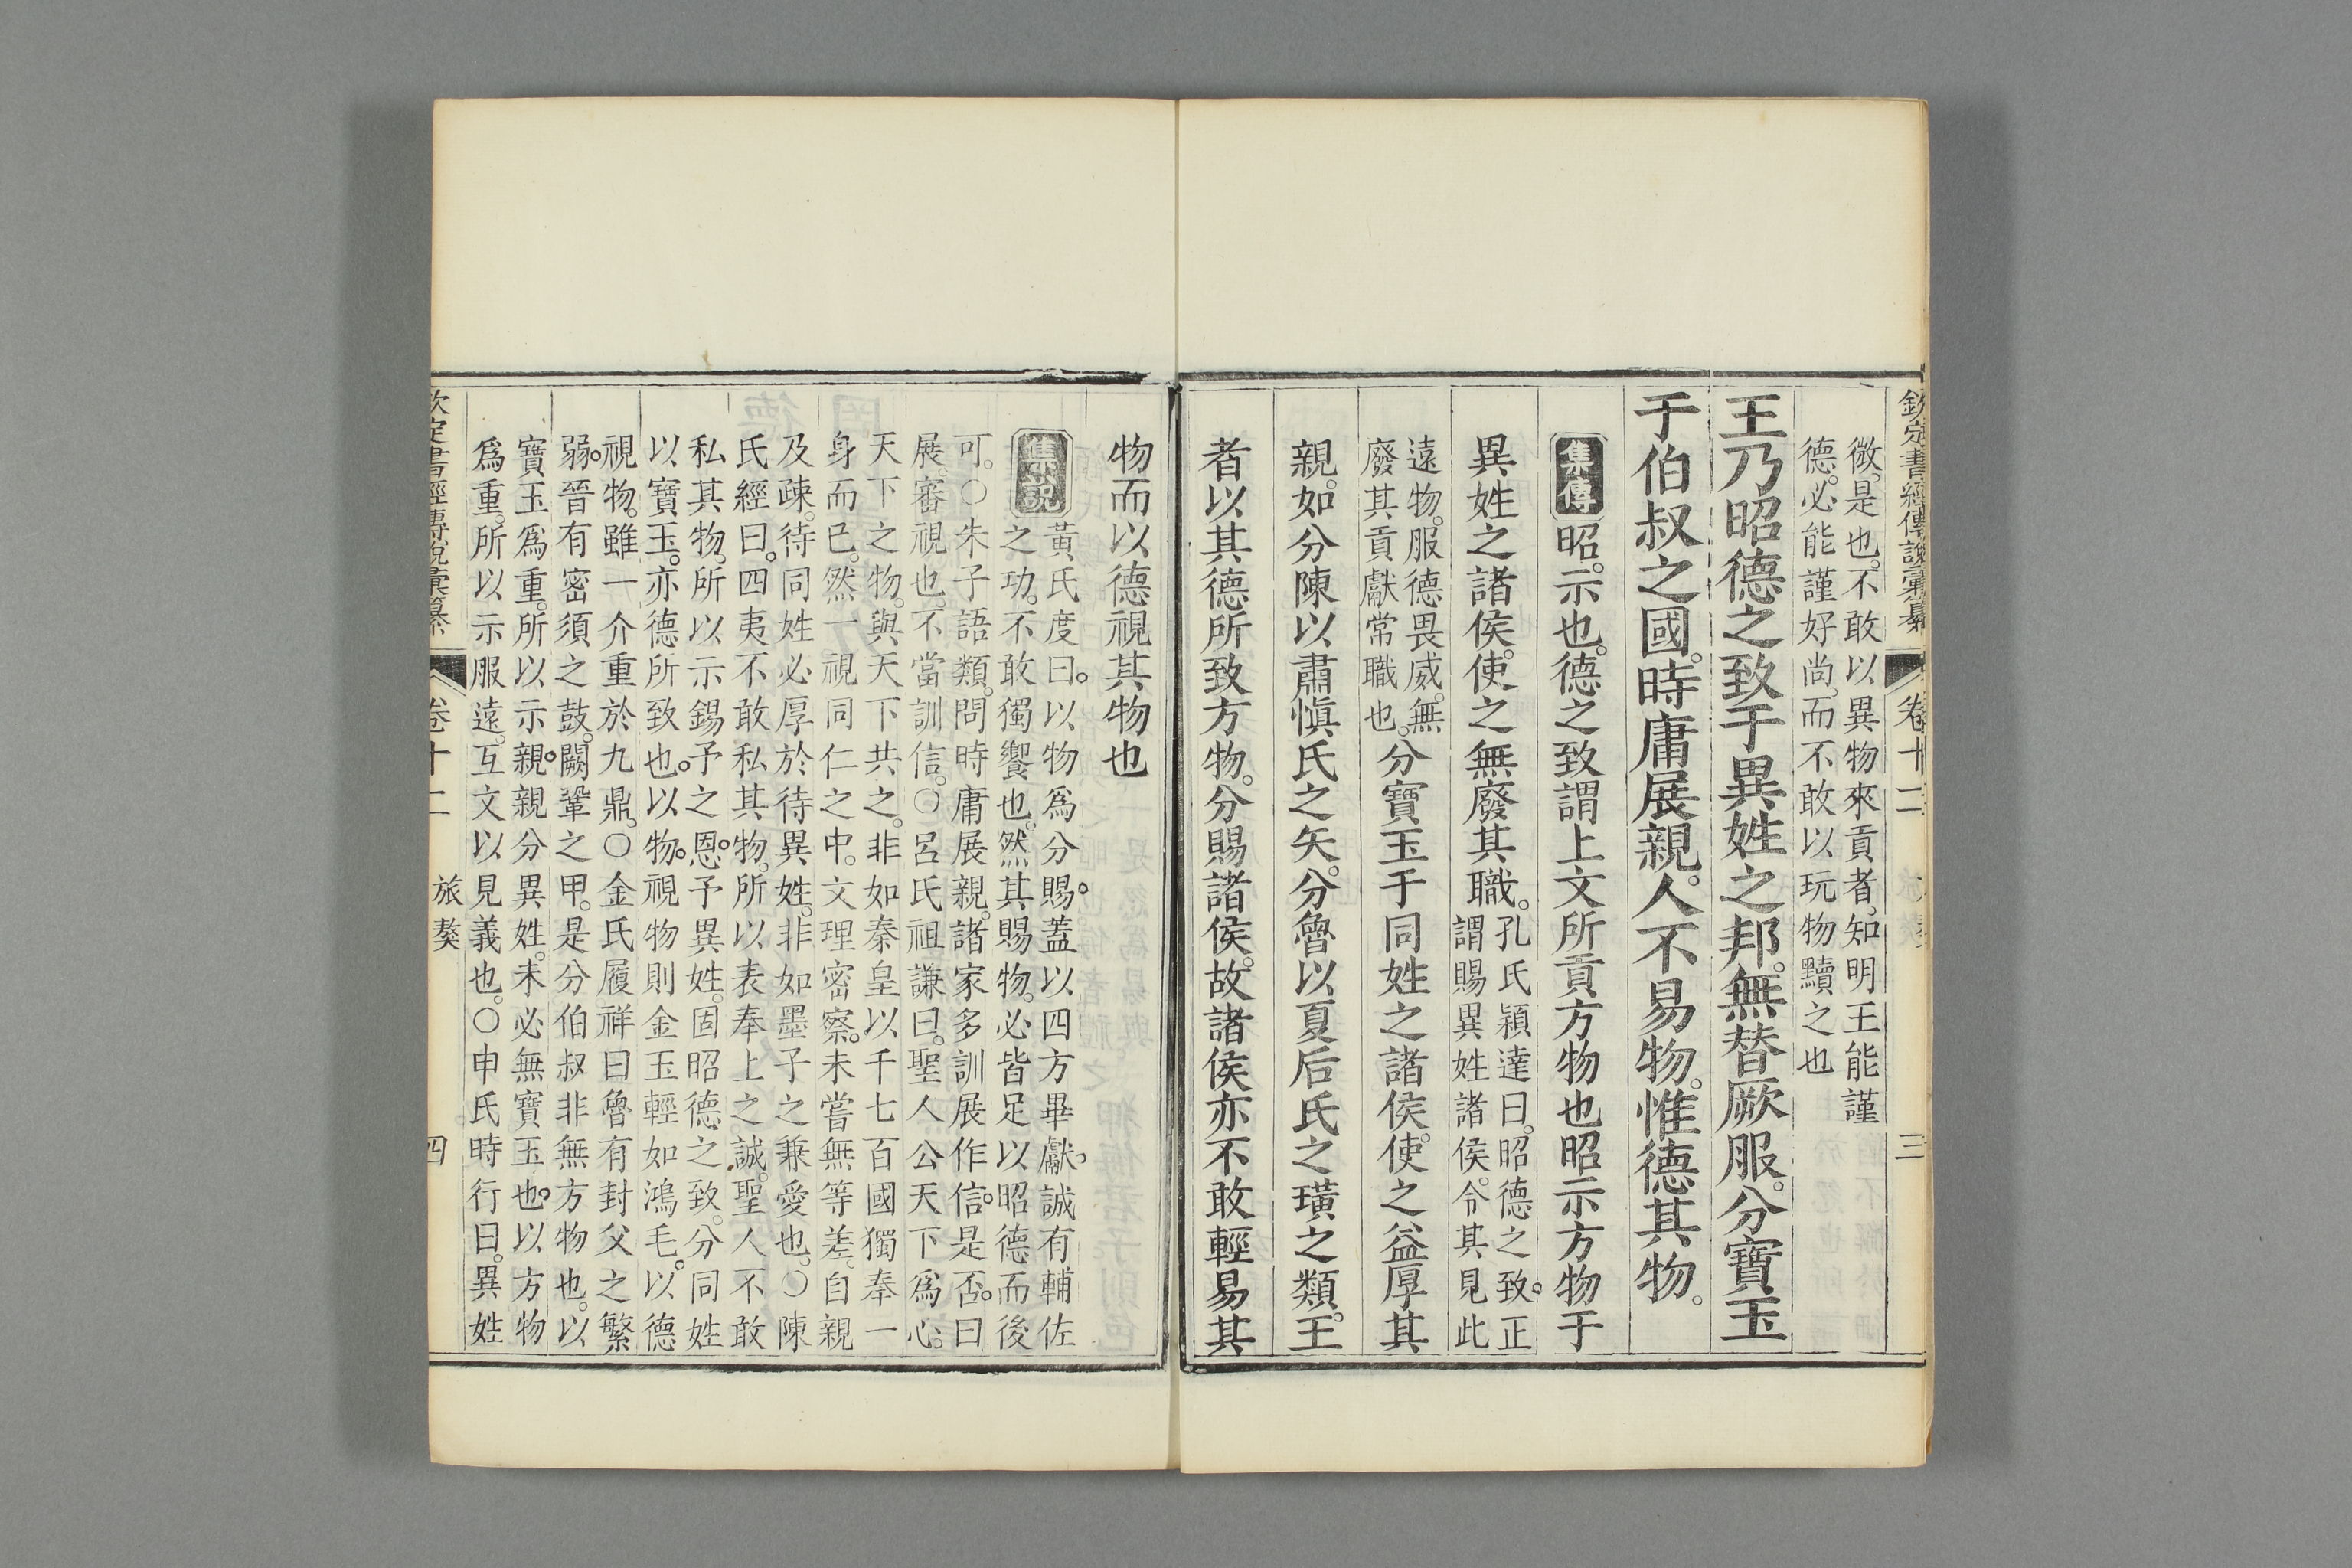 欽定書經傳說彙纂 卷十二 旅獒 三
微。是也。不敢以異物來貢者。知明王能謹
德。必能謹好尚。而不敢以玩物黷之也
王乃昭德之致于異姓之邦。無替厥服。分寶玉
于伯叔之國。時庸展親。人不易物。惟德其物。
集傳 昭。示也。德之致謂上文所貢方物也昭示方物于
異姓之諸侯。使之無廢其職。孔氏穎達曰。昭德之致。正
謂賜異姓諸侯。令其見此
遠物。服德畏威。無
廢其貢獻常職也。分寶玉于同姓之諸侯。使之益厚其
親。如分陳以肅慎氏之矢。分魯以夏后氏之璜之類。王
者以其德所致方物。分賜諸侯。故諸侯亦不敢輕易其
物而以德視其物也
集說 黃氏度曰。以物為分賜。蓋以四方畢獻。誠有輔佐
之功。不敢獨饗也。然其賜物。必皆足以昭德而後
可。○朱子語類。問時庸展親。諸家多訓展作信。是否。曰
展。審視也。不當訓信。○呂氏祖謙曰。聖人公天下為心。
天下之物。與天下共之。非如秦皇以千七百國獨奉一
身而已。然一視同仁之中。文理密察。未嘗無等差。自親
及疎。待同姓必厚於待異姓。非如墨子之兼愛也。○陳
氏經曰。四夷不敢私其物。所以表奉上之誠。聖人不敢
私其物。所以示錫予之恩。予異姓。固昭德之致。分同姓
以寶玉。亦德所致也。以物。視物則金玉輕如鴻毛。以德
視物。雖一介重於九鼎。○金氏履祥曰魯有封父之繁
弱。晉有密須之鼓。闕鞏之甲。是分伯叔非無方物也。以
寶玉為重。所以示親。親分異姓。未必無寶玉也。以方物
為重。所以示服遠。互文以見義也。○申氏時行曰。異姓
欽定書經傳說彙纂 卷十二 旅獒 四